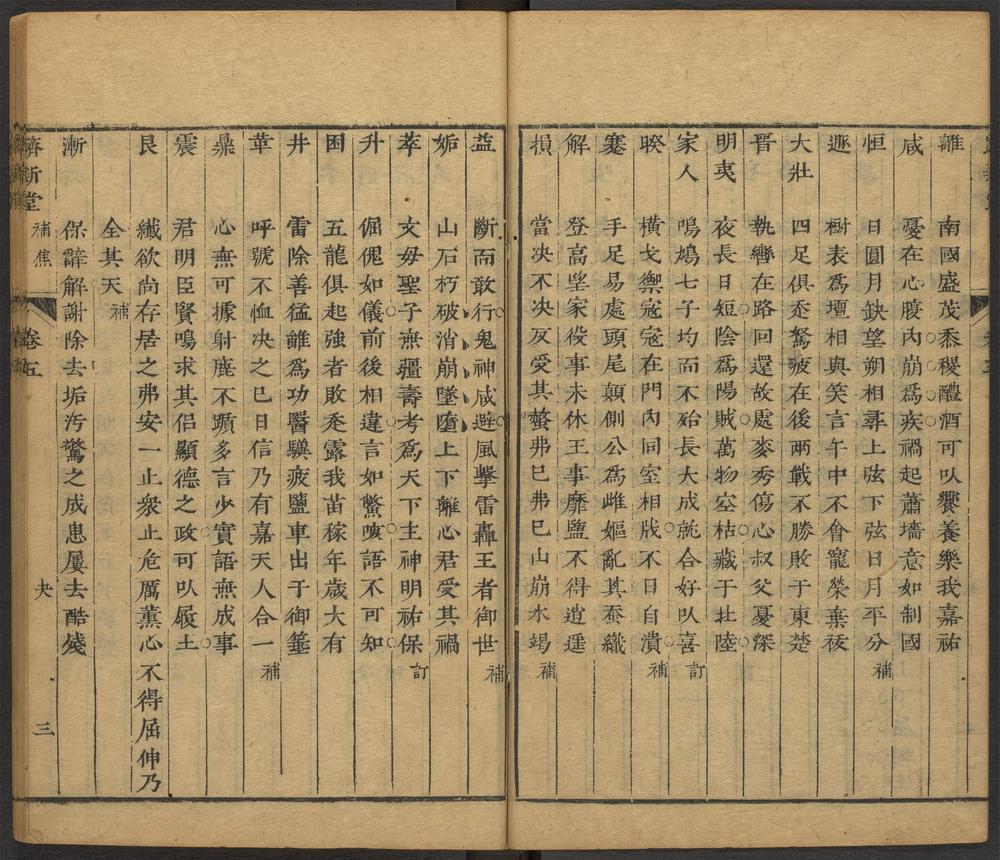 離　南國盛茂黍稷醴酒可以饗養樂我嘉祐
咸　憂在心腹內崩爲疾禍起蕭墻意如制國
恒　日圓月缺望朔相尋上弦下弦日月平分　補
遯　樹表爲壇相與笑言午中不會寵榮棄廢
大壯　四足俱丞駑疲在後兩戰不勝敗于東楚
晋　執轡在路回還故處麥秀傷心叔父憂深
明夷　夜長日短陰爲陽賊萬物空枯藏于北陸
家人　鳴鳩七子均而不殆長大成就合好以喜　訂
睽　橫戈禦寇寇在門內同室相戕不日自潰　補
蹇　手足易處頭尾顛側公爲雌嫗亂其蚕織
解　登高望家役事未休王事靡鹽不得逍遥
損　當决不决反受其螫弗巳弗巳山崩水竭　補
益　斷而敢行鬼神咸避風擊雷轟王者御世　補
姤　山石朽破消崩墜墮上下離心君受其禍
萃　文母聖子無疆壽考爲天下主神明祐保　訂
升　倔傀如儀前後相違言如鱉咳語不可知
困　五龍俱起強者敗丞露我苗稼年歲大有
井　雷除善猛雖爲功醫驥疲鹽車出于御箠
革　呼號不恤决之巳日信乃有嘉天人合一　補
鼎　心無可據射鹿不顕多言少實語無成事
震　君明臣賢鳴求其侣顯德之政可以履土
艮　纖欲尚存居之弗安一止衆止危厲薰心不得屈伸乃
全其天　補
漸　保辭解謝除去垢汚驚之成患屢去酷殘
濟新堂　補焦　卷五　夬　三